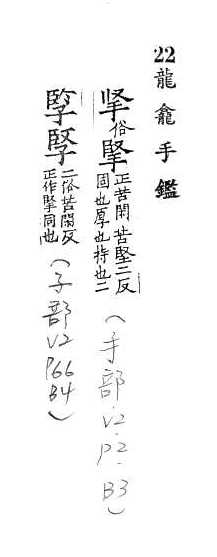 22龍龕手鑑
俗掔
正苦閑苦堅二反
固也厚也持也二
(手部.V2.P2.B3)
孯
二俗苦閑反
正作掔同也
(子部V2P66B4)